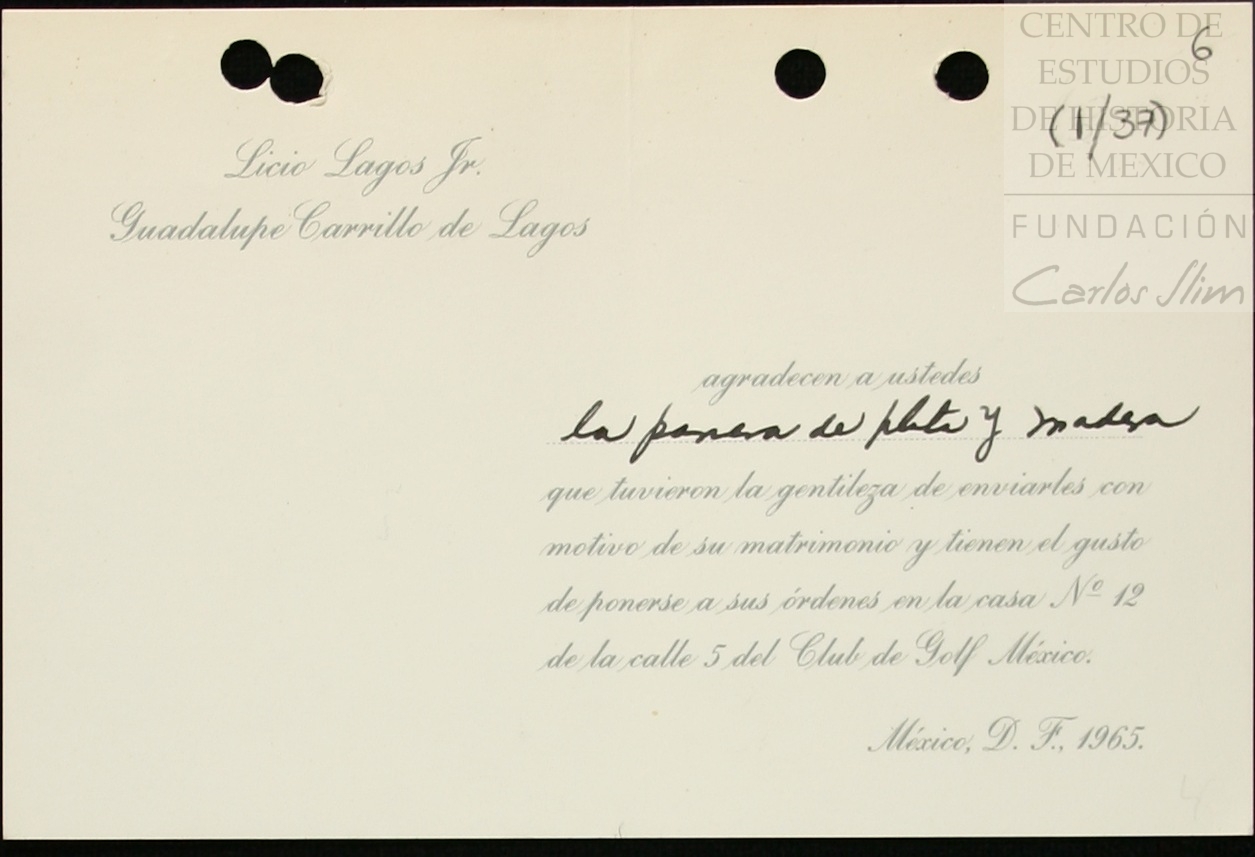 CENTRO DE
ESTUDIOS
DE HISTORIA
DE MEXICO
FUNDACIÓN
Carlos Slim
6
(1/37)
Licio Lagos Jr.
Guadalupe Carrillo de Lagos
agradecen a ustedes
la panera de plata y madera
que tuvieron la gentileza de enviarles con
motivo de su matrimonio y tienen el gusto
de ponerse a sus órdenes en la casa Nº 12
de la calle 5 del Club de Golf México.
México, D. F., 1965.